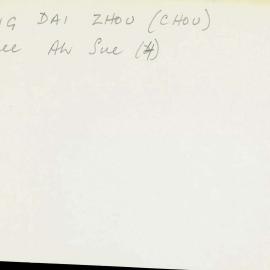 NG DAI ZHOU (CHOU)
ee Ah Sue (4)